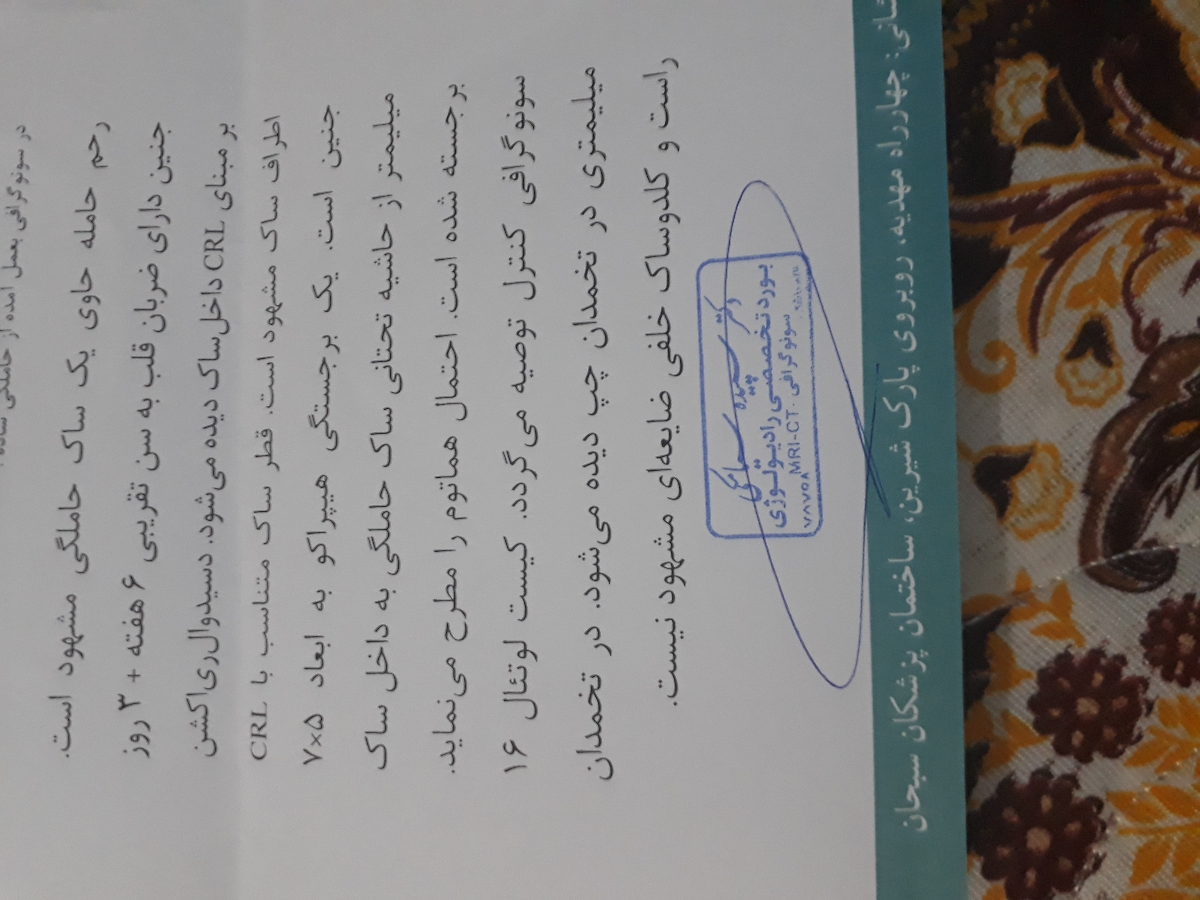 در سونوگرافی بعمل آمده از حاملگی ساده:
رحم حامله حاوی یک ساک حاملگی مشهود است.
جنین دارای ضربان قلب به سن تقریبی ۶ هفته + ۳ روز
بر مبنای CRL داخل ساک دیده می‌شود. دسیدوال ری‌اکشن
اطراف ساک مشهود است. قطر ساک متناسب با CRL
جنین است. یک برجستگی هیپراکو به ابعاد ۷×۵
میلیمتر از حاشیه تحتانی ساک حاملگی به داخل ساک
برجسته شده است. احتمال هماتوم را مطرح می‌نماید.
سونوگرافی کنترل توصیه می‌گردد. کیست لوتئال ۱۶
میلیمتری در تخمدان چپ دیده می‌شود. در تخمدان
راست و کلدوساک خلفی ضایعه‌ای مشهود نیست.
دکتر سپیده
بورد تخصصی رادیولوژی
سونوگرافی . MRI-CT
۷۸۷۵۸
نشانی: چهارراه مهدیه، روبروی پارک شیرین، ساختمان پزشکان سبحان